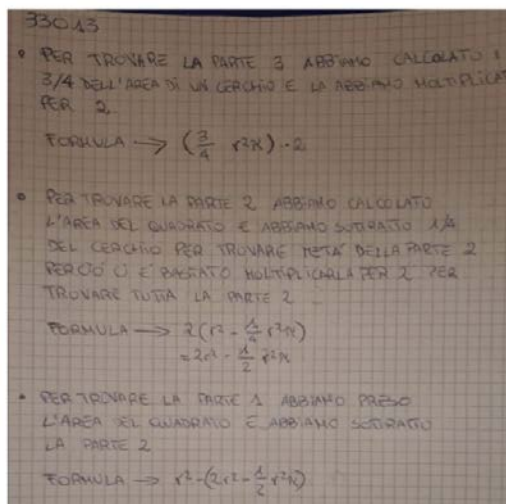 33013
• PER TROVARE LA PARTE 3 ABBIAMO CALCOLATO I
3/4 DELL'AREA DI UN CERCHIO E LA ABBIAMO MOLTIPLICAT
PER 2
FORMULA → (3/4 r²π)·2
• PER TROVARE LA PARTE 2 ABBIAMO CALCOLATO
L'AREA DEL QUADRATO E ABBIAMO SOTTRATTO 1/4
DEL CERCHIO PER TROVARE META' DELLA PARTE 2
PERCIÒ CI E' BASTATO MOLTIPLICARLA PER 2 PER
TROVARE TUTTA LA PARTE 2
FORMULA → 2(r² - 1/4 r²π)
= 2r² - 1/2 r²π
• PER TROVARE LA PARTE 1 ABBIAMO PRESO
L'AREA DEL QUADRATO E ABBIAMO SOTTRATTO
LA PARTE 2
FORMULA → r² - (2r² - 1/2 r²π)